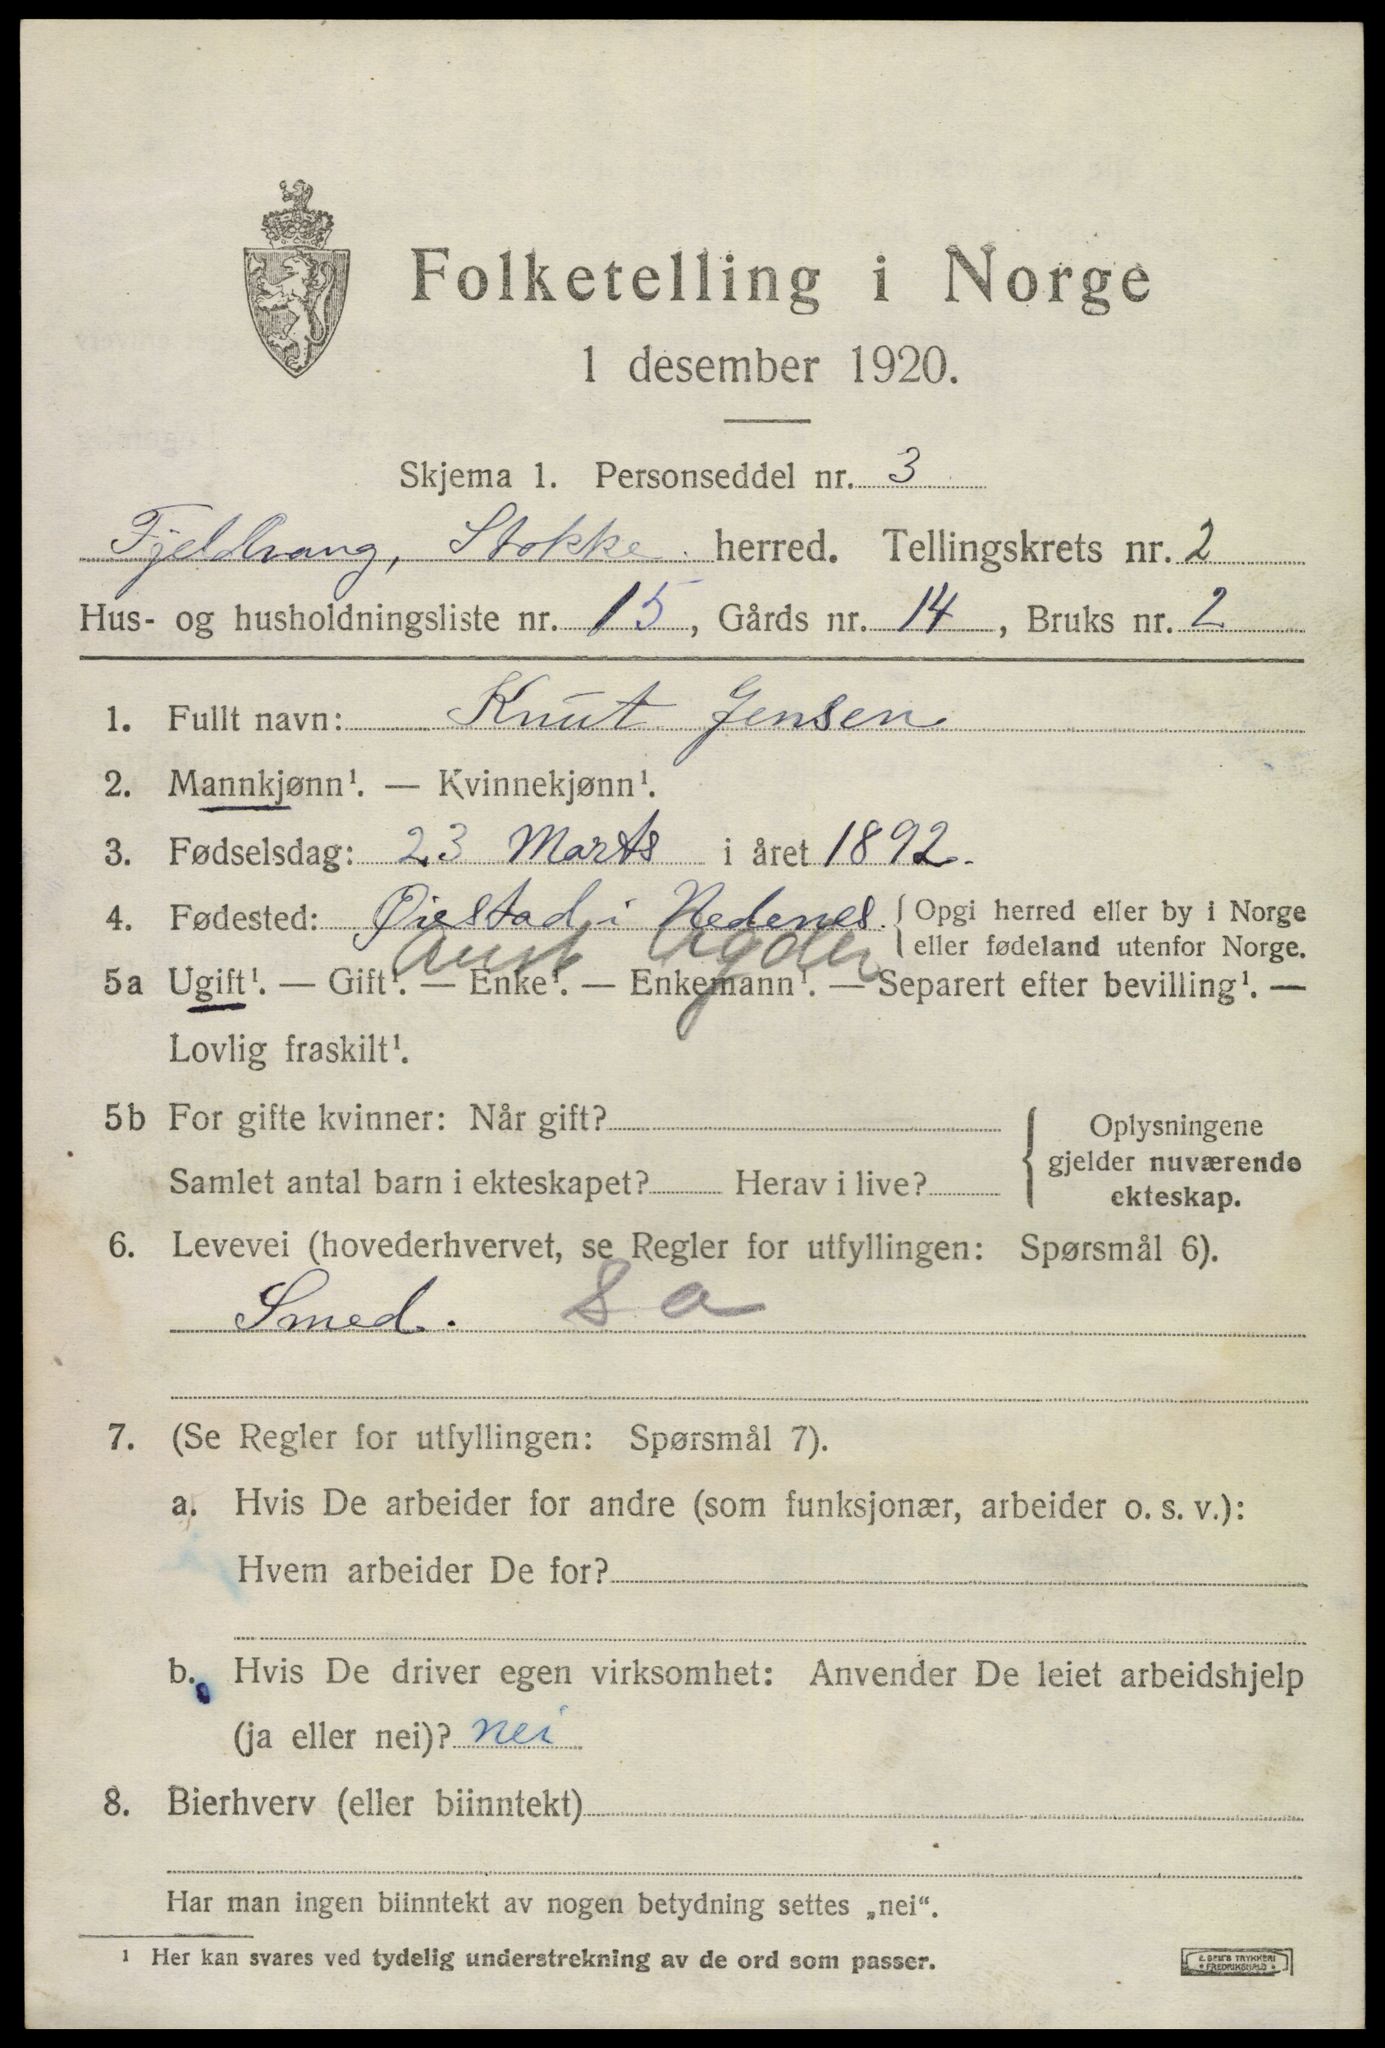 Folketelling i Norge
1 desember 1920.
Skjema 1. Personseddel nr. 3
Fjeldvang, Stokke herred. Tellingskrets nr. 2
Hus- og husholdningsliste nr. 15, Gårds nr. 14, Bruks nr. 2
1. Fullt navn: Knut Jensen
2. Mannkjønn¹. — Kvinnekjønn¹.
3. Fødselsdag: 23 Marts i året 1892.
4. Fødested: Øiestad i Nedenes. { Opgi herred eller by i Norge
eller fødeland utenfor Norge.
Aust Agder
5a Ugift¹. — Gift¹. — Enke¹. — Enkemann¹. — Separert efter bevilling¹. —
Lovlig fraskilt¹.
5b For gifte kvinner: Når gift?
Samlet antal barn i ekteskapet? Herav i live?
{ Oplysningene
gjelder nuværende
ekteskap.
6. Levevei (hovederhvervet, se Regler for utfyllingen: Spørsmål 6).
Smed. 8 a
7. (Se Regler for utfyllingen: Spørsmål 7).
a. Hvis De arbeider for andre (som funksjonær, arbeider o. s. v.):
Hvem arbeider De for?
b. Hvis De driver egen virksomhet: Anvender De leiet arbeidshjelp
(ja eller nei)? nei
8. Bierhverv (eller biinntekt)
Har man ingen biinntekt av nogen betydning settes „nei“.
¹ Her kan svares ved tydelig understrekning av de ord som passer.
E. SEM'S TRYKKERI
• FREDRIKSHALD •